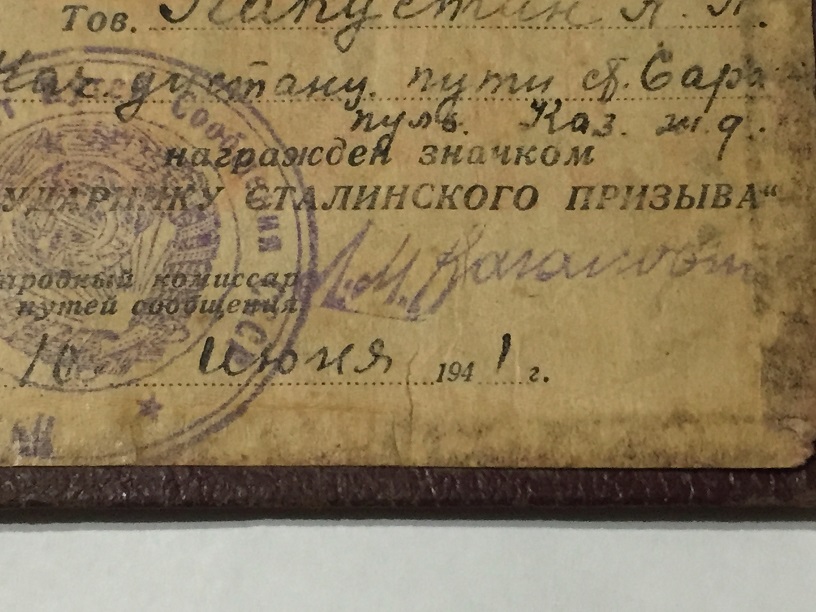 Тов. Капустин А. П.
Нач. дистанц. пути ст. Сара
пуль. Каз. ж. д.
награжден значком
УДАРНИКУ СТАЛИНСКОГО ПРИЗЫВА“
родный комиссар
путей сообщения
Л. М. Каганович
10 июня 1941 г.
Сообщения СССР